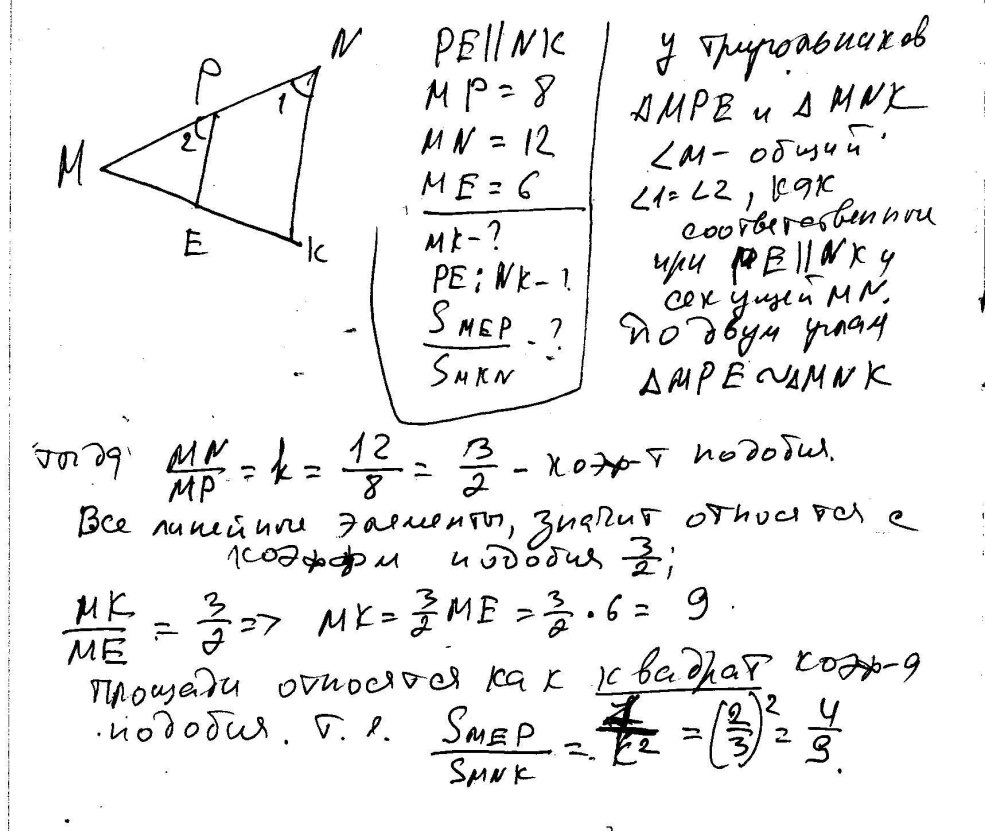 M
P
N
E
K
1
2
PE||NK
MP = 8
MN = 12
ME = 6
MK - ?
PE : NK - ?
S MEP / S MKN - ?
У треугольников
ΔMPE и ΔMNK
∠M - общий
∠1=∠2, как
соответственные
при PE||NK и
секущей MN.
По двум углам
ΔMPE ~ ΔMNK
тогда MN/MP = k = 12/8 = 3/2 - коэф-т подобия.
Все линейные элементы, значит относятся с
коэффм подобия 3/2;
MK/ME = 3/2 => MK = 3/2 ME = 3/2 · 6 = 9.
Площади относятся как квадрат коэф-а
подобия. т. е. S MEP / S MNK = 1/k² = (2/3)² = 4/9.